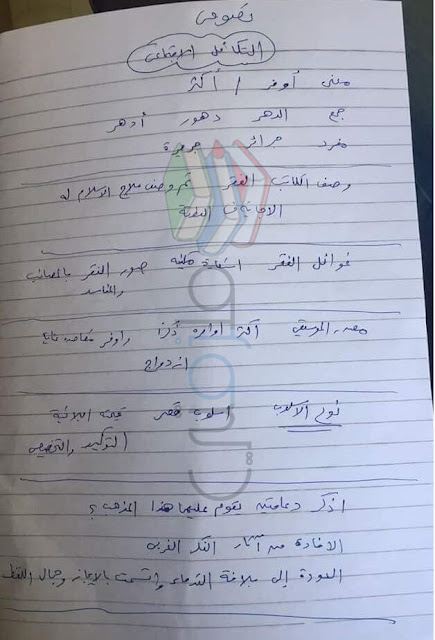 نصوص
التكافل الاجتماعي
معنى أوفر / أكثر
جمع الدهر دهور أدهر
مفرد جرائر جريرة
وصف الكاتب الفقر ثم وصف علاج الاسلام له
الاجابة في القطعة
غوائل الفقر استعارة مكنية صور الفقر بالمصائب
والمفاسد
مصدر الموسيقي أكثر اوامره ذكرا واوفر مقاصده
ازدواج
نوع الاسلوب اسلوب قصر قيمته البلاغية
التوكيد والتخصيص
اذكر دعامتين يقوم عليهما هذا المذهب؟
الافادة من آثار الفكر الغربي
العودة إلى بلاغة القدماء واتسمت بالإيجاز وجمال اللفظ